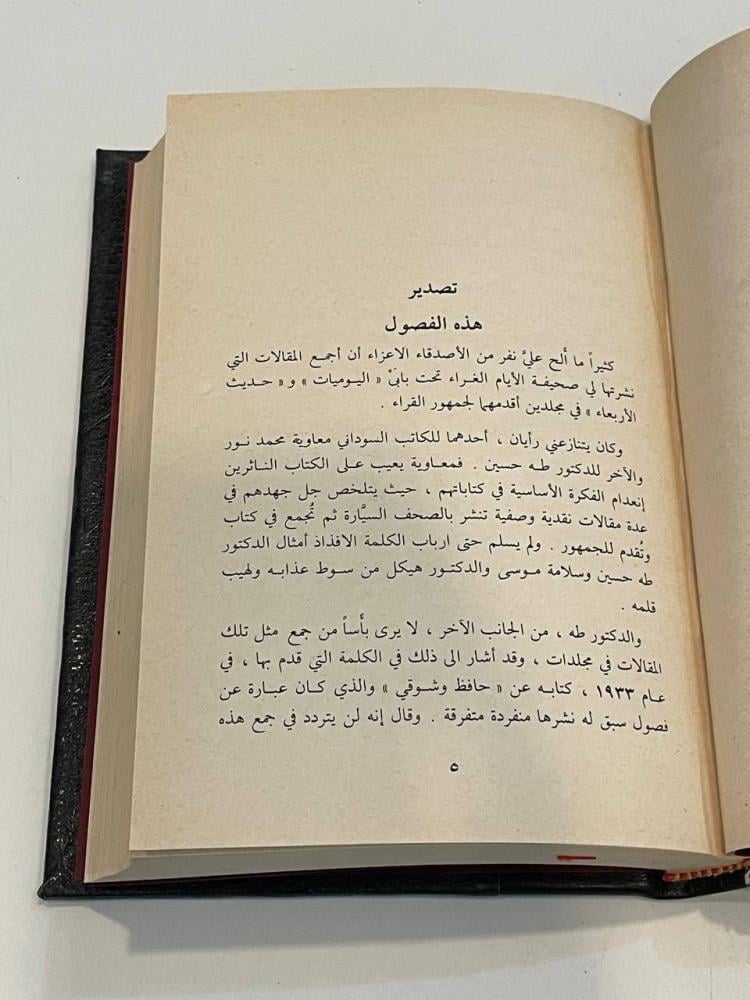 تصدير
هذه الفصول
كثيراً ما ألح عليَّ نفر من الأصدقاء الاعزاء أن أجمع المقالات التي
نشرتها لي صحيفة الأيام الغراء تحت بابَيْ « اليوميات » و « حديث
الأربعاء » في مجلدين أقدمهما لجمهور القراء .
وكان يتنازعني رأيان ، أحدهما للكاتب السوداني معاوية محمد نور
والآخر للدكتور طه حسين . فمعاوية يعيب على الكتاب الناثرين
إنعدام الفكرة الأساسية في كتاباتهم ، حيث يتلخص جل جهدهم في
عدة مقالات نقدية وصفية تنشر بالصحف السيَّارة ثم تُجمع في كتاب
وتُقدم للجمهور . ولم يسلم حتى ارباب الكلمة الافذاذ أمثال الدكتور
طه حسين وسلامة موسى والدكتور هيكل من سوط عذابه ولهيب
قلمه .
والدكتور طه ، من الجانب الآخر ، لا يرى بأساً من جمع مثل تلك
المقالات في مجلدات ، وقد أشار الى ذلك في الكلمة التي قدم بها ، في
عام ١٩٣٣ ، كتابه عن « حافظ وشوقي » والذي كان عبارة عن
فصول سبق له نشرها منفردة متفرقة . وقال إنه لن يتردد في جمع هذه
٥